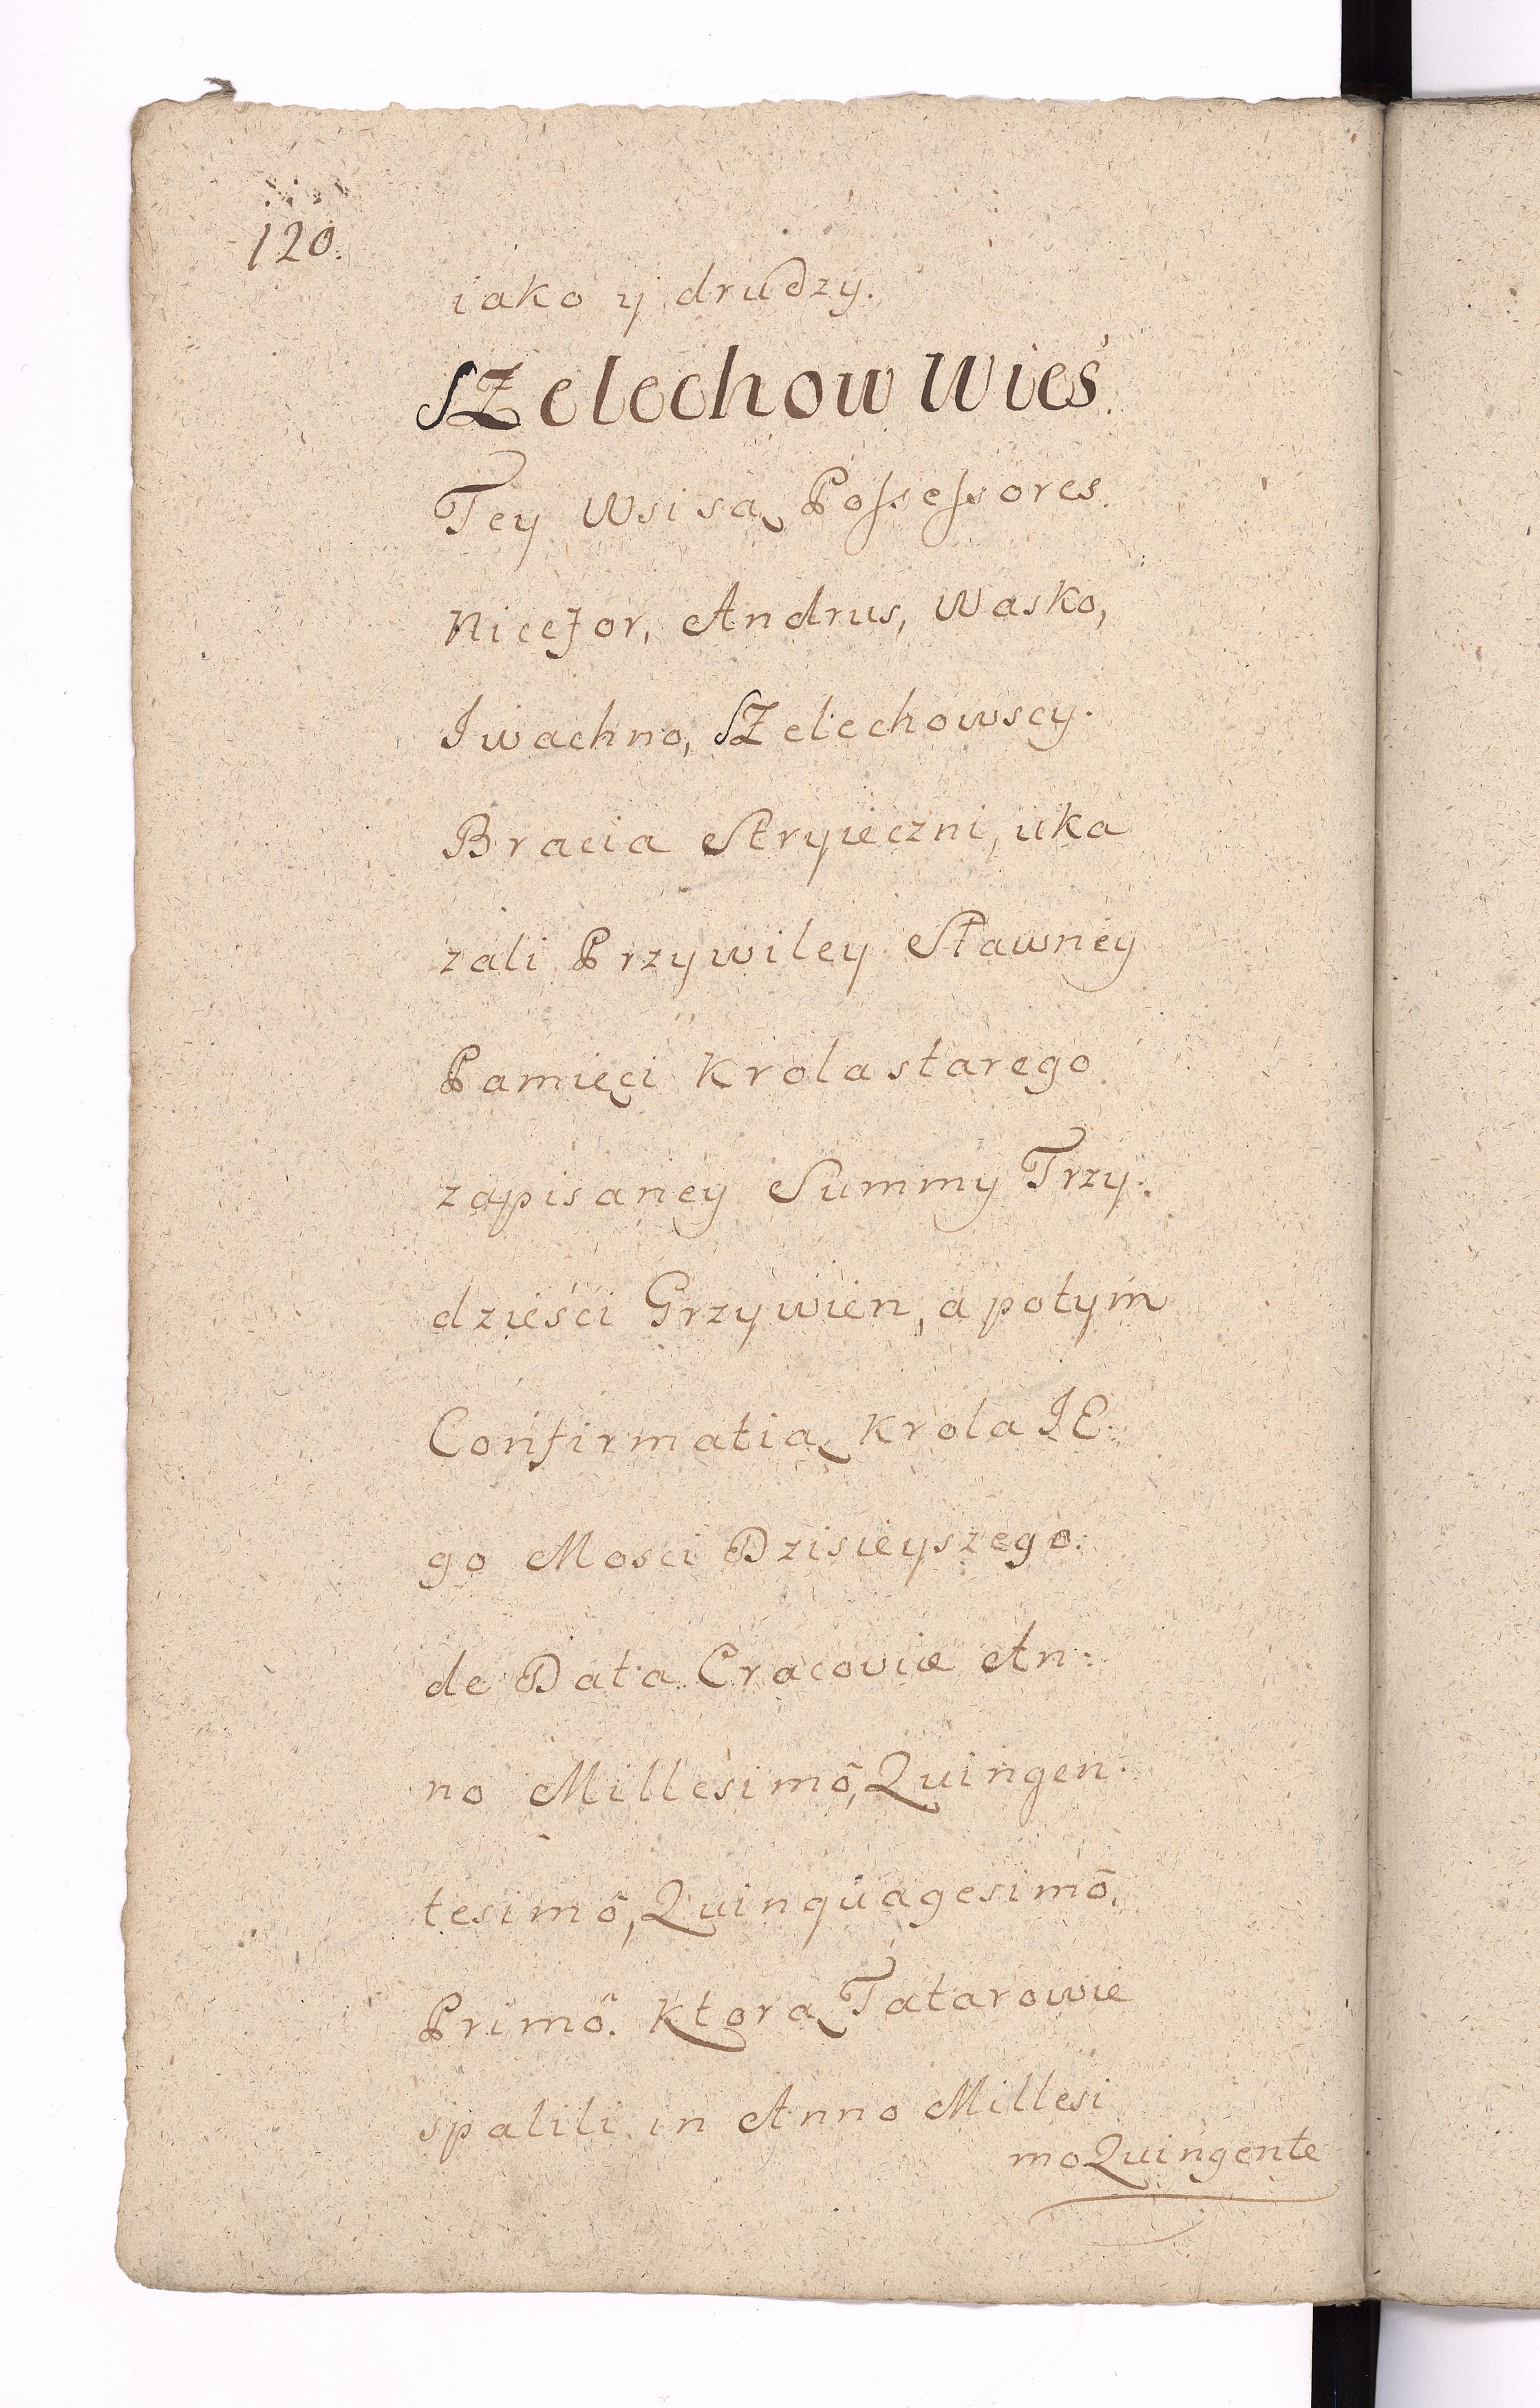 120.
iako y drudzy.
SZelechow Wieś.
Tey Wsi są Possessores.
Nicefor, Andrus, Wasko,
Iwachno, SZelechowscy.
Bracia Stryieczni, uka
zali Przywiley Sławney
Pamięci Krola starego
zapisaney Summy Trzy:
dzieści Grzywien, a potym
Confirmatią Krola JE:
go Mosci Dzisieyszego.
de Data Cracoviæ An:
no Millesimô, Quingen:
tesimô, Quinquagesimô,
Primô. Ktorą Tatarowie
spalili in Anno Millesi
mo Quingente